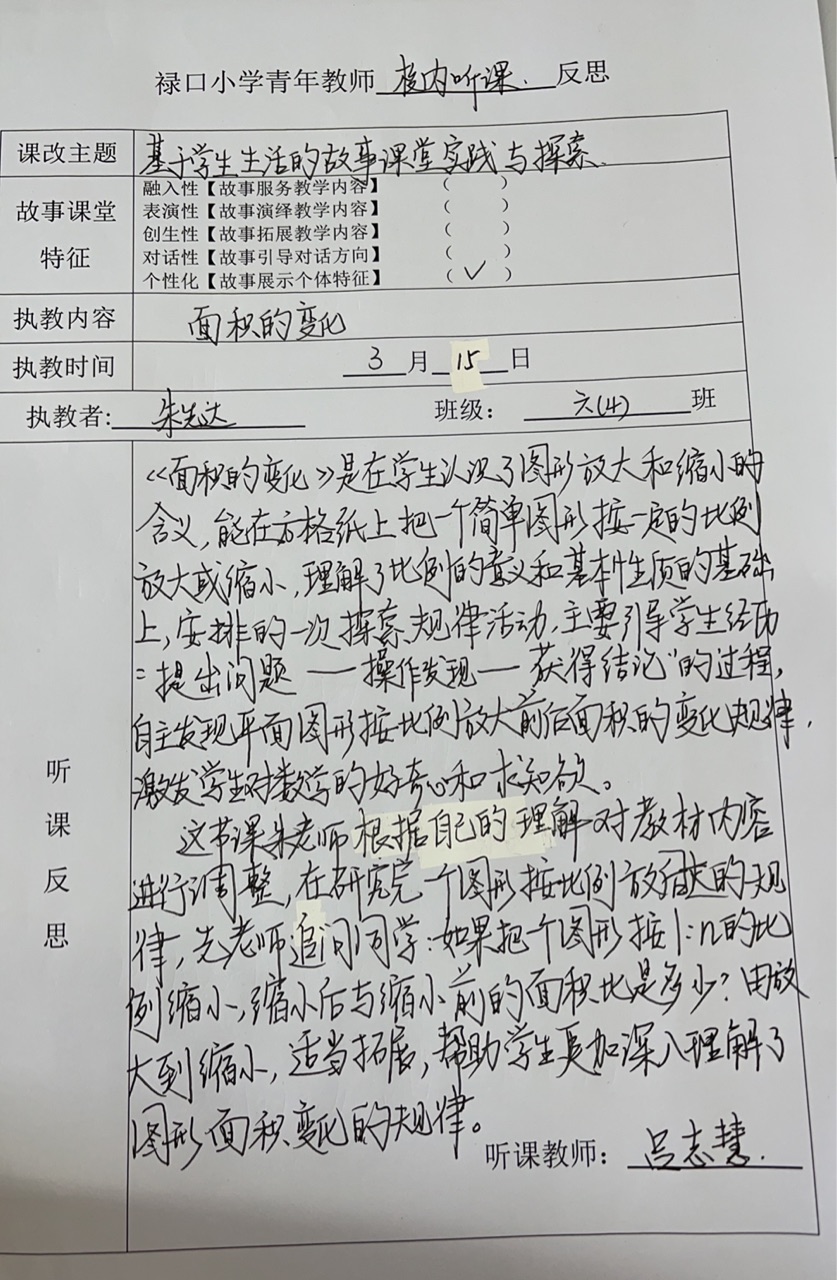 禄口小学青年教师 校内听课. 反思
课改主题 基于学生生活的故事课堂实践与探索.
故事课堂特征
融入性【故事服务教学内容】 （ ）
表演性【故事演绎教学内容】 （ ）
创生性【故事拓展教学内容】 （ ）
对话性【故事引导对话方向】 （ ）
个性化【故事展示个体特征】 （ ✓ ）
执教内容 面积的变化
执教时间 3 月 15 日
执教者: 朱先达 班级： 六(4) 班
听课反思
《面积的变化》是在学生认识了图形放大和缩小的
含义，能在方格纸上把一个简单图形按一定的比例
放大或缩小，理解了比例的意义和基本性质的基础
上，安排的一次探索规律活动，主要引导学生经历
“提出问题——操作发现—获得结论”的过程，
自主发现平面图形按比例放大前后面积的变化规律，
激发学生对数学的好奇心和求知欲。
这节课朱老师根据自己的理解对教材内容
进行调整，在研究完一个图形按比例放大的规
律，先老师追问同学：如果把一个图形按1:n的比
例缩小，缩小后与缩小前的面积比是多少？由放
大到缩小，适当拓展，帮助学生更加深入理解了
图形面积变化的规律。
听课教师： 吕志慧.